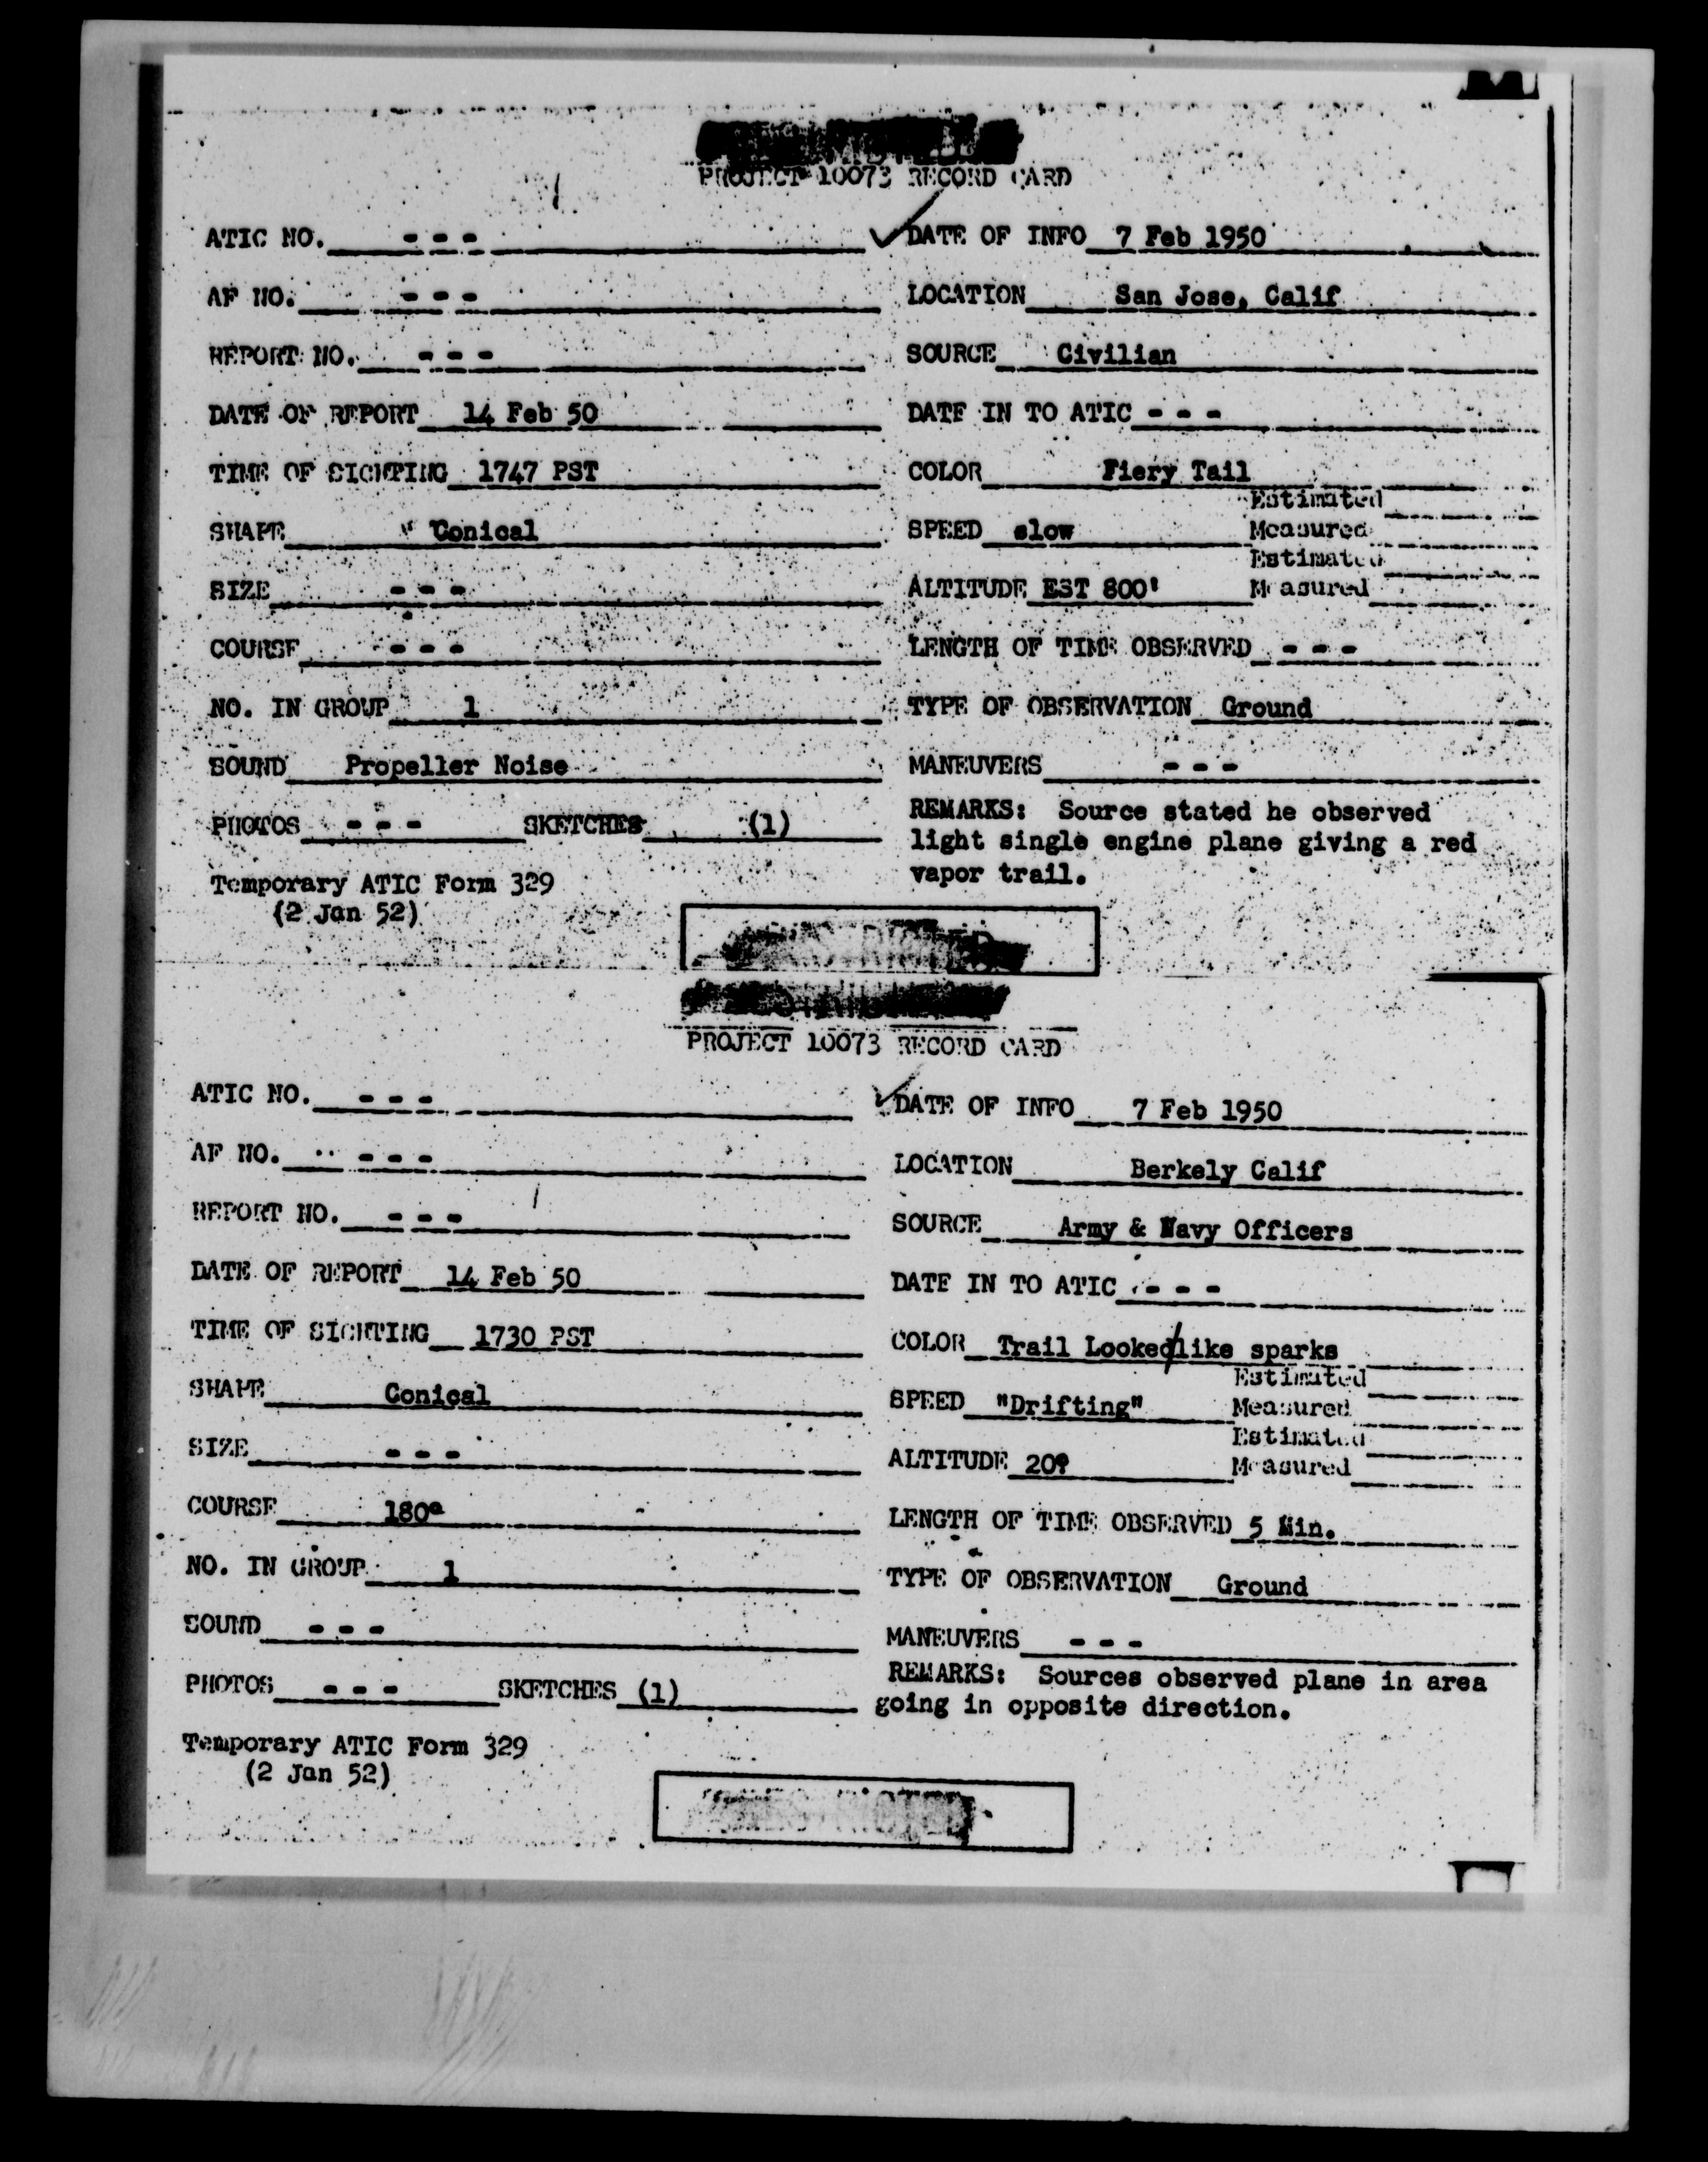 PROJECT 10073 RECORD CARD
ATIC NO. - - - DATE OF INFO 7 Feb 1950
AF NO. - - - LOCATION San Jose, Calif
REPORT NO. - - - SOURCE Civilian
DATE OF REPORT 14 Feb 50 DATE IN TO ATIC - - -
TIME OF SIGHTING 1747 PST COLOR Fiery Tail
Estimated
SHAPE Conical SPEED slow Measured
Estimated
SIZE - - - ALTITUDE EST 800' Measured
COURSE - - - LENGTH OF TIME OBSERVED - - -
NO. IN GROUP 1 TYPE OF OBSERVATION Ground
SOUND Propeller Noise MANEUVERS - - -
PHOTOS - - - SKETCHES (1) REMARKS: Source stated he observed
light single engine plane giving a red
vapor trail.
Temporary ATIC Form 329
(2 Jan 52)
PROJECT 10073 RECORD CARD
ATIC NO. - - - DATE OF INFO 7 Feb 1950
AF NO. - - - LOCATION Berkely Calif
REPORT NO. - - - SOURCE Army & Navy Officers
DATE OF REPORT 14 Feb 50 DATE IN TO ATIC - - -
TIME OF SIGHTING 1730 PST COLOR Trail Looked/like sparks
Estimated
SHAPE Conical SPEED "Drifting" Measured
Estimated
SIZE - - - ALTITUDE Measured
COURSE 180° LENGTH OF TIME OBSERVED 5 Min.
NO. IN GROUP 1 TYPE OF OBSERVATION Ground
SOUND - - - MANEUVERS - - -
PHOTOS - - - SKETCHES (1) REMARKS: Sources observed plane in area
going in opposite direction.
Temporary ATIC Form 329
(2 Jan 52)